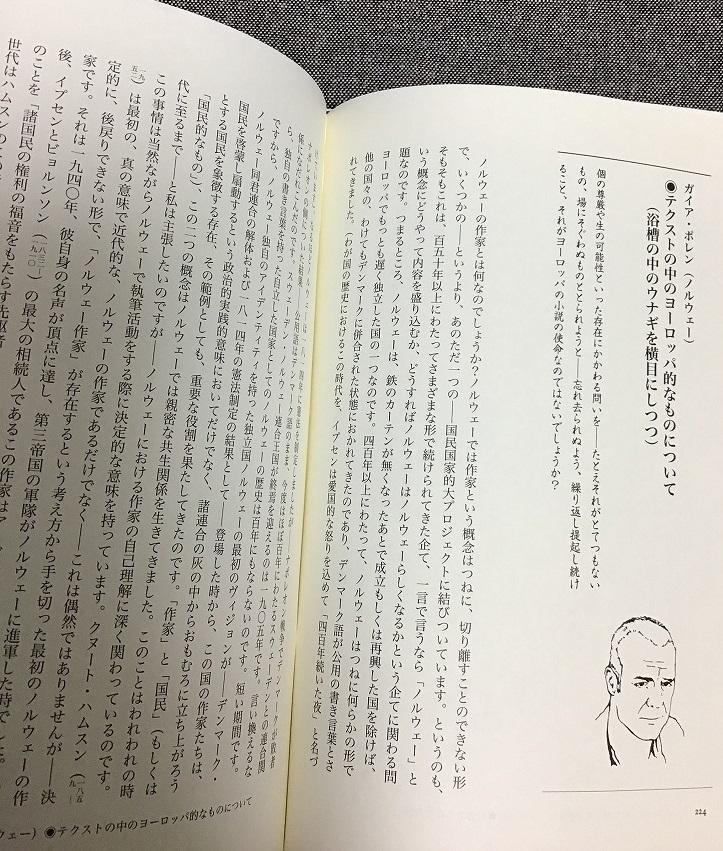 ガイア・ボレン（ノルウェー）
◉テクストの中のヨーロッパ的なものについて
（浴槽の中のウナギを横目にしつつ）
個の尊厳や生の可能性といった存在にかかわる問いを――たとえそれがとてつもない
もの、場にそぐわぬものととられようと――忘れ去られぬよう、繰り返し提起し続け
ること、それがヨーロッパの小説の使命なのではないでしょうか？
ノルウェーの作家とは何なのでしょうか？ノルウェーでは作家という概念はつねに、切り離すことのできない形
で、いくつかの――というより、あのただ一つの――国民国家的大プロジェクトに結びついています。というのも、
そもそもこれは、百五十年以上にわたってさまざまな形で続けられてきた企て、一言で言うなら「ノルウェー」と
いう概念にどうやって内容を盛り込むか、どうすればノルウェーはノルウェーらしくなるかという企てに関わる問
題なのです。つまるところ、ノルウェーは、鉄のカーテンが無くなったあとで成立もしくは再興した国を除けば、
ヨーロッパでもっとも遅く独立した国の一つなのです。四百年以上にわたって、ノルウェーはつねに何らかの形で
他の国々の、わけてもデンマークに併合された状態におかれてきたのであり、デンマーク語が公用の書き言葉とさ
れてきました。（わが国の歴史におけるこの時代を、イプセンは愛国的な怒りを込めて「四百年続いた夜」と名づ
224
八一四年に憲法を制定しましたが――ナポレオン戦争でデンマークが敗者
公用語はデンマーク語のまま、今度はほぼ百年にわたるスウェーデンとの連合関
係になだれこんだのです。スウェーデン・ノルウェー連合王国が終焉を迎えるのは一九〇五年です。言い換えるな
ら、独自の書き言葉を持った自立した国家としてのノルウェーの歴史は百年にもならないのです。短い期間です。
ですから、ノルウェー独自のアイデンティティを持った独立国ノルウェーの最初のヴィジョンが――デンマーク・
ノルウェー同君連合の解体および一八一四年の憲法制定の結果として――登場した時から、この国の作家たちは、
国民を啓蒙し扇動するという政治的実践的意味においてだけでなく、諸連合の灰の中からおもむろに立ち上がろう
とする国民を象徴する存在、その範例としても、重要な役割を果たしてきたのです。「作家」と「国民」（もしくは
「国民的なもの」）、この二つの概念はノルウェーでは親密な共生関係を生きてきました。このことはわれわれの時
代に至るまで――と私は主張したいのですが――ノルウェーにおける作家の自己理解に深く関わっているのです。
この事情は当然ながらノルウェーで執筆活動をする際に決定的な意味を持っています。クヌート・ハムスン（一八五九―
一九五二）は最初の、真の意味で近代的な、ノルウェーの作家であるだけでなく――これは偶然ではありませんが――決
定的に、後戻りできない形で、「ノルウェー作家」が存在するという考え方から手を切った最初のノルウェーの作
家です。それは一九四〇年、彼自身の名声が頂点に達し、第三帝国の軍隊がノルウェーに進軍した時でした。
後、イプセンとビョルンソン（一八三二―一九一〇）の最大の相続人であるこの作家は
のことを「諸国民の権利の福音をもたらす先駆者
世代はハムスンの
ウェー）◉テクストの中のヨーロッパ的なものについて